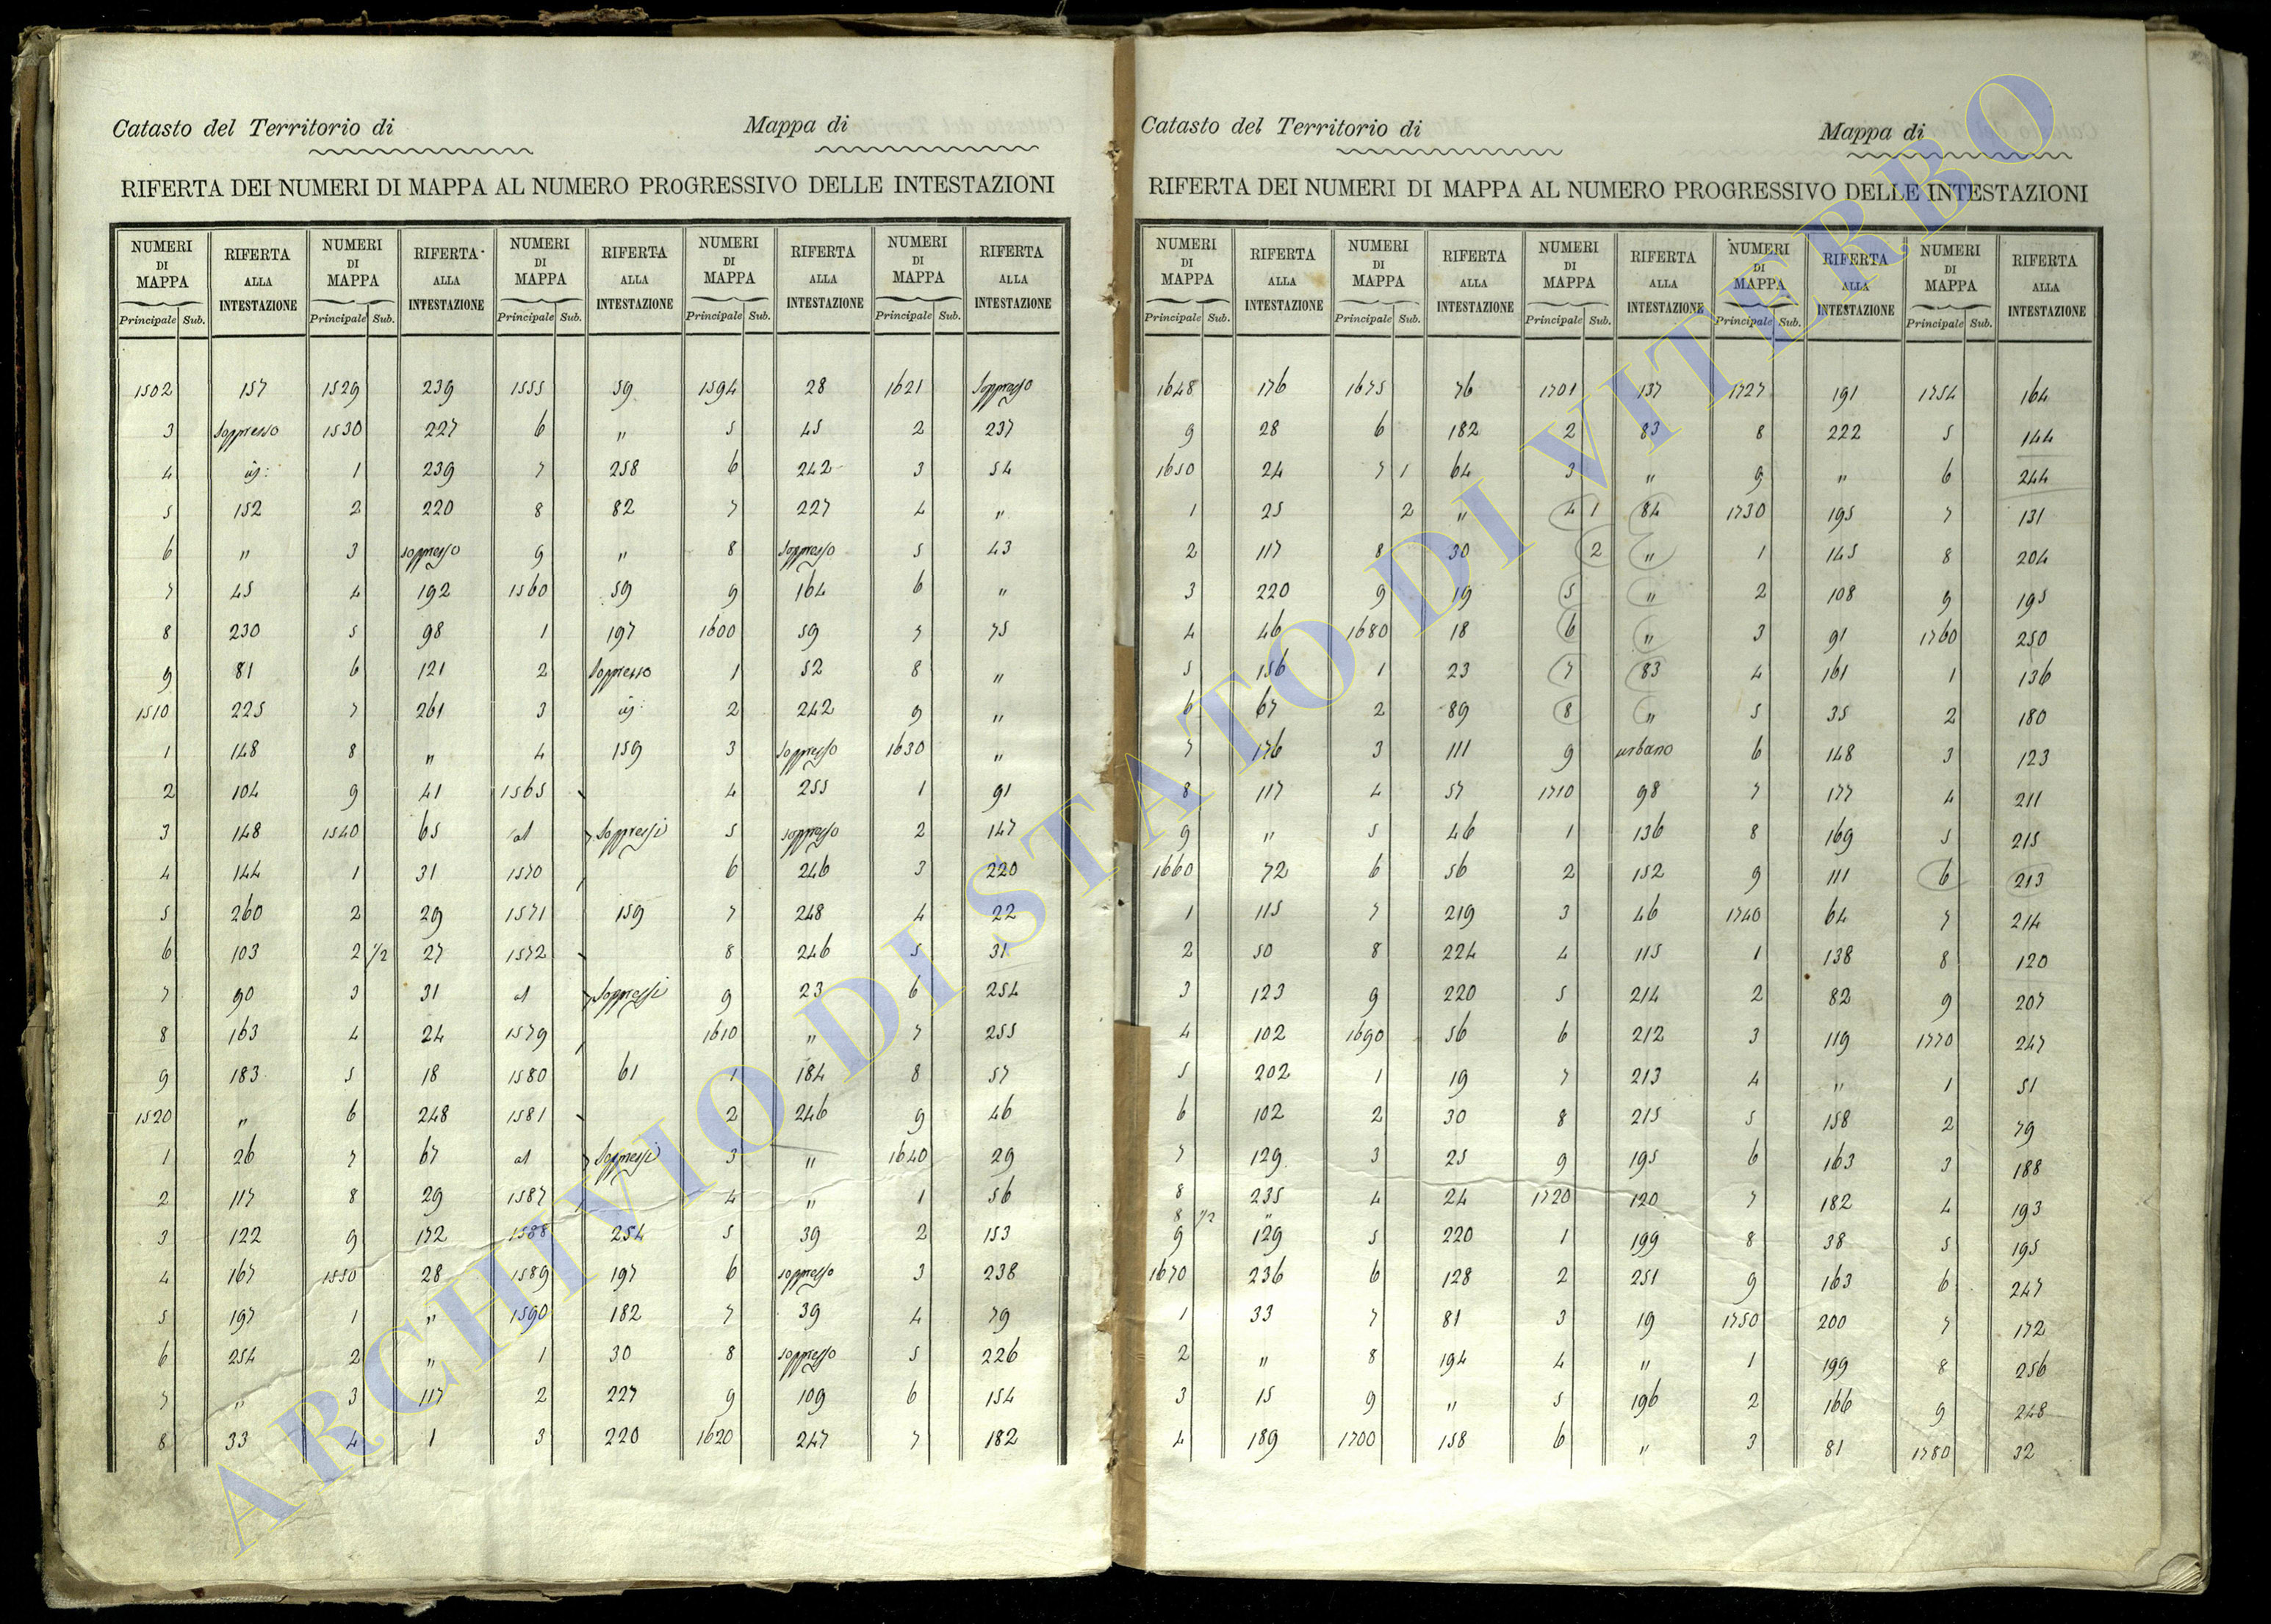 Catasto del Territorio di Mappa di
RIFERTA DEI NUMERI DI MAPPA AL NUMERO PROGRESSIVO DELLE INTESTAZIONI
NUMERI DI MAPPA RIFERTA ALLA INTESTAZIONE NUMERI DI MAPPA RIFERTA ALLA INTESTAZIONE NUMERI DI MAPPA RIFERTA ALLA INTESTAZIONE NUMERI DI MAPPA RIFERTA ALLA INTESTAZIONE NUMERI DI MAPPA RIFERTA ALLA INTESTAZIONE
Principale Sub. Principale Sub. Principale Sub. Principale Sub. Principale Sub.
1502 157 1529 239 1555 59 1594 28 1621 Soppresso
3 Soppresso 1530 227 6 " 5 45 2 237
4 id: 1 239 7 258 6 242 3 54
5 152 2 220 8 82 7 227 4 "
6 " 3 soppresso 9 " 8 Soppresso 5 43
7 45 4 192 1560 59 9 164 6 "
8 230 5 98 1 197 1600 59 7 75
9 81 6 121 2 Soppresso 1 52 8 "
1510 225 7 261 3 id: 2 242 9 "
1 148 8 " 4 159 3 soppresso 1630 "
2 104 9 41 1565 4 255 1 91
3 148 1540 65 al Soppressi 5 soppresso 2 147
4 144 1 31 1570 6 246 3 220
5 260 2 29 1571 159 7 248 4 22
6 103 2 1/2 27 1572 8 246 5 31
7 90 3 31 al Soppressi 9 23 6 254
8 163 4 24 1579 1610 " 7 255
9 183 5 18 1580 61 1 184 8 57
1520 " 6 248 1581 2 246 9 46
1 26 7 67 al Soppressi 3 " 1640 29
2 117 8 29 1587 4 " 1 56
3 122 9 172 1588 254 5 39 2 153
4 167 1550 28 1589 197 6 soppresso 3 238
5 197 1 " 1590 182 7 39 4 79
6 254 2 " 1 30 8 soppresso 5 226
7 " 3 117 2 227 9 109 6 154
8 33 4 1 3 220 1620 247 7 182
Catasto del Territorio di Mappa di
RIFERTA DEI NUMERI DI MAPPA AL NUMERO PROGRESSIVO DELLE INTESTAZIONI
NUMERI DI MAPPA RIFERTA ALLA INTESTAZIONE NUMERI DI MAPPA RIFERTA ALLA INTESTAZIONE NUMERI DI MAPPA RIFERTA ALLA INTESTAZIONE NUMERI DI MAPPA RIFERTA ALLA INTESTAZIONE NUMERI DI MAPPA RIFERTA ALLA INTESTAZIONE
Principale Sub. Principale Sub. Principale Sub. Principale Sub. Principale Sub.
1648 176 1675 76 1701 137 1727 191 1754 164
9 28 6 182 2 83 8 222 5 144
1650 24 7 1 64 3 " 9 " 6 244
1 25 2 " 4 1 84 1730 195 7 131
2 117 8 30 2 " 1 145 8 204
3 220 9 19 5 " 2 108 9 195
4 46 1680 18 6 " 3 91 1760 250
5 156 1 23 7 83 4 161 1 136
6 67 2 89 8 " 5 35 2 180
7 176 3 111 9 urbano 6 148 3 123
8 117 4 57 1710 98 7 177 4 211
9 " 5 46 1 136 8 169 5 215
1660 72 6 56 2 152 9 111 6 213
1 115 7 219 3 46 1740 64 7 214
2 50 8 224 4 115 1 138 8 120
3 123 9 220 5 214 2 82 9 207
4 102 1690 56 6 212 3 119 1770 247
5 202 1 19 7 213 4 " 1 51
6 102 2 30 8 215 5 158 2 79
7 129 3 25 9 195 6 163 3 188
8 235 4 24 1720 120 7 182 4 193
8 1/2 "
9 129 5 220 1 199 8 38 5 195
1670 236 6 128 2 251 9 163 6 247
1 33 7 81 3 19 1750 200 7 172
2 " 8 194 4 " 1 199 8 256
3 15 9 " 5 196 2 166 9 248
4 189 1700 158 6 " 3 81 1780 32
ARCHIVIO DI STATO DI VITERBO